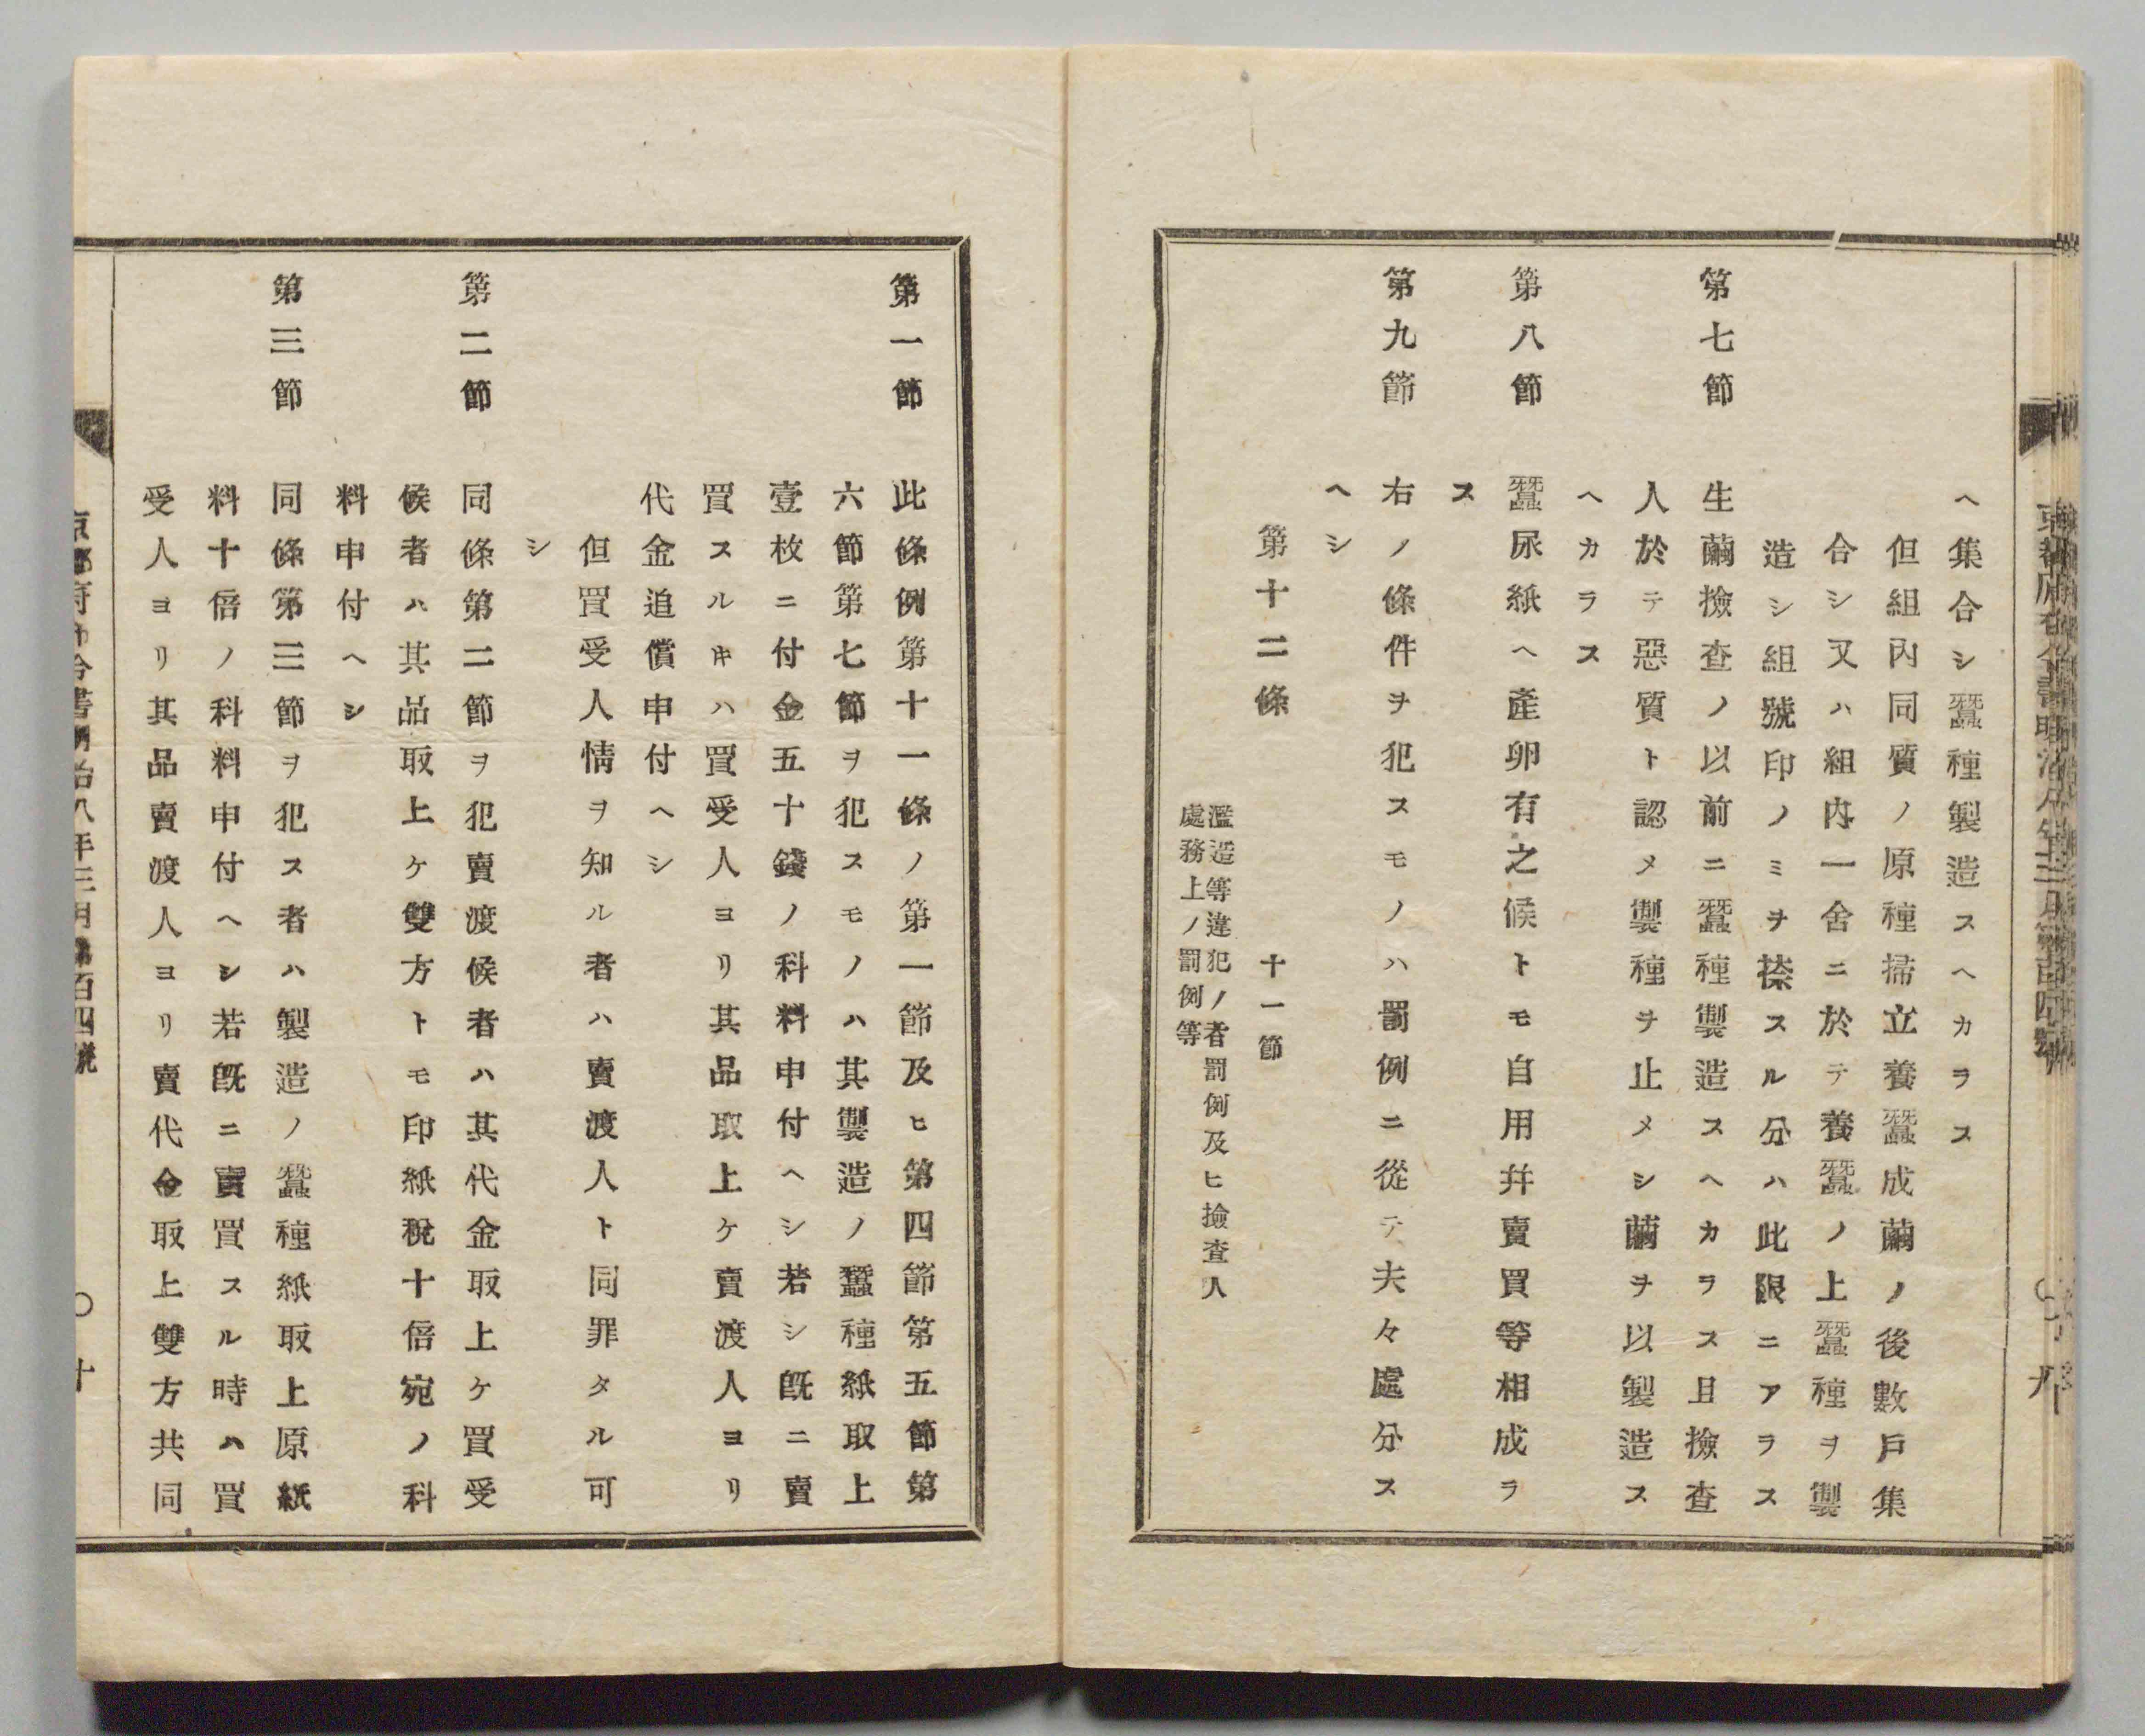 ヘ集合シ蠶種製造スヘカラス
但組內同質ノ原種掃立養蠶成繭ノ後數戶集
合シ又ハ組內一舍ニ於テ養蠶ノ上蠶種ヲ製
造シ組號印ノミヲ捺スル分ハ此限ニアラス
第七節 生繭撿査ノ以前ニ蠶種製造スヘカラス且撿査
人於テ惡質ト認メ製種ヲ止メシ繭ヲ以製造ス
ヘカラス
第八節 蠶尿紙ヘ產卵有之候トモ自用幷賣買等相成ラ
ス
第九節 右ノ條件ヲ犯スモノハ罰例ニ從テ夫々處分ス
ヘシ
第十二條 十一節
濫造等違犯ノ者罰例及ヒ撿査人
處務上ノ罰例等
第一節 此條例第十一條ノ第一節及ヒ第四節第五節第
六節第七節ヲ犯スモノハ其製造ノ蠶種紙取上
壹枚ニ付金五十錢ノ科料申付ヘシ若シ旣ニ賣
買スルキハ買受人ヨリ其品取上ケ賣渡人ヨリ
代金追償申付ヘシ
但買受人情ヲ知ル者ハ賣渡人ト同罪タル可
シ
第二節 同條第二節ヲ犯賣渡候者ハ其代金取上ケ買受
候者ハ其品取上ケ雙方トモ印紙稅十倍宛ノ科
料申付ヘシ
第三節 同條第三節ヲ犯ス者ハ製造ノ蠶種紙取上原紙
料十倍ノ科料申付ヘシ若旣ニ賣買スル時ハ買
受人ヨリ其品賣渡人ヨリ賣代金取上雙方共同